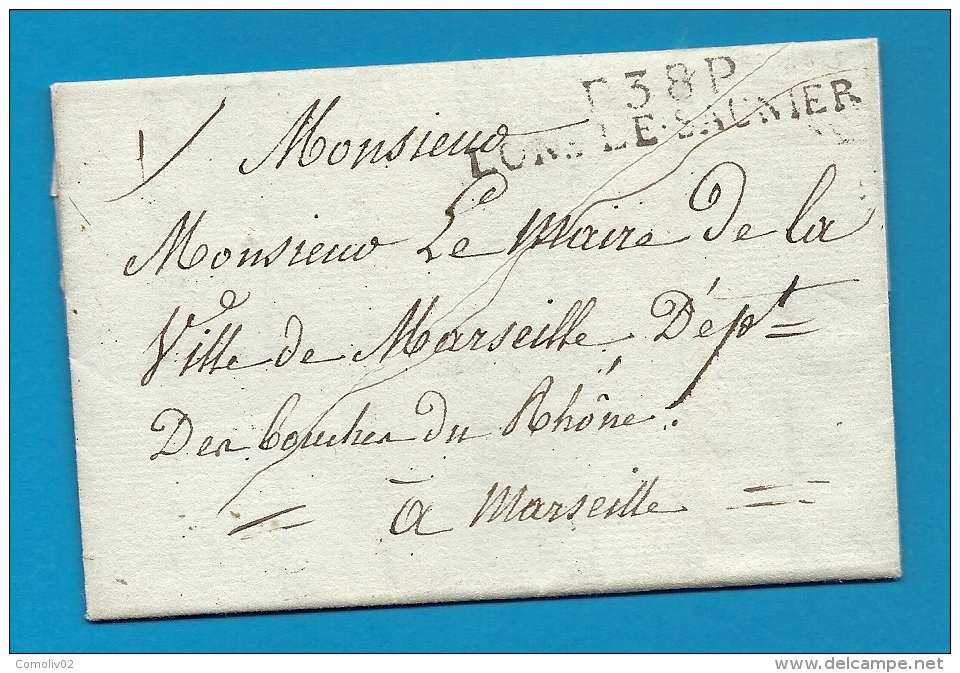 P38P
LONS-LE-SAUNIER
1
Monsieur
Monsieur Le Maire de la
Ville de Marseille, Dépt
Des bouches du Rhône.
à Marseille
Comoliv02
www.delcampe.net